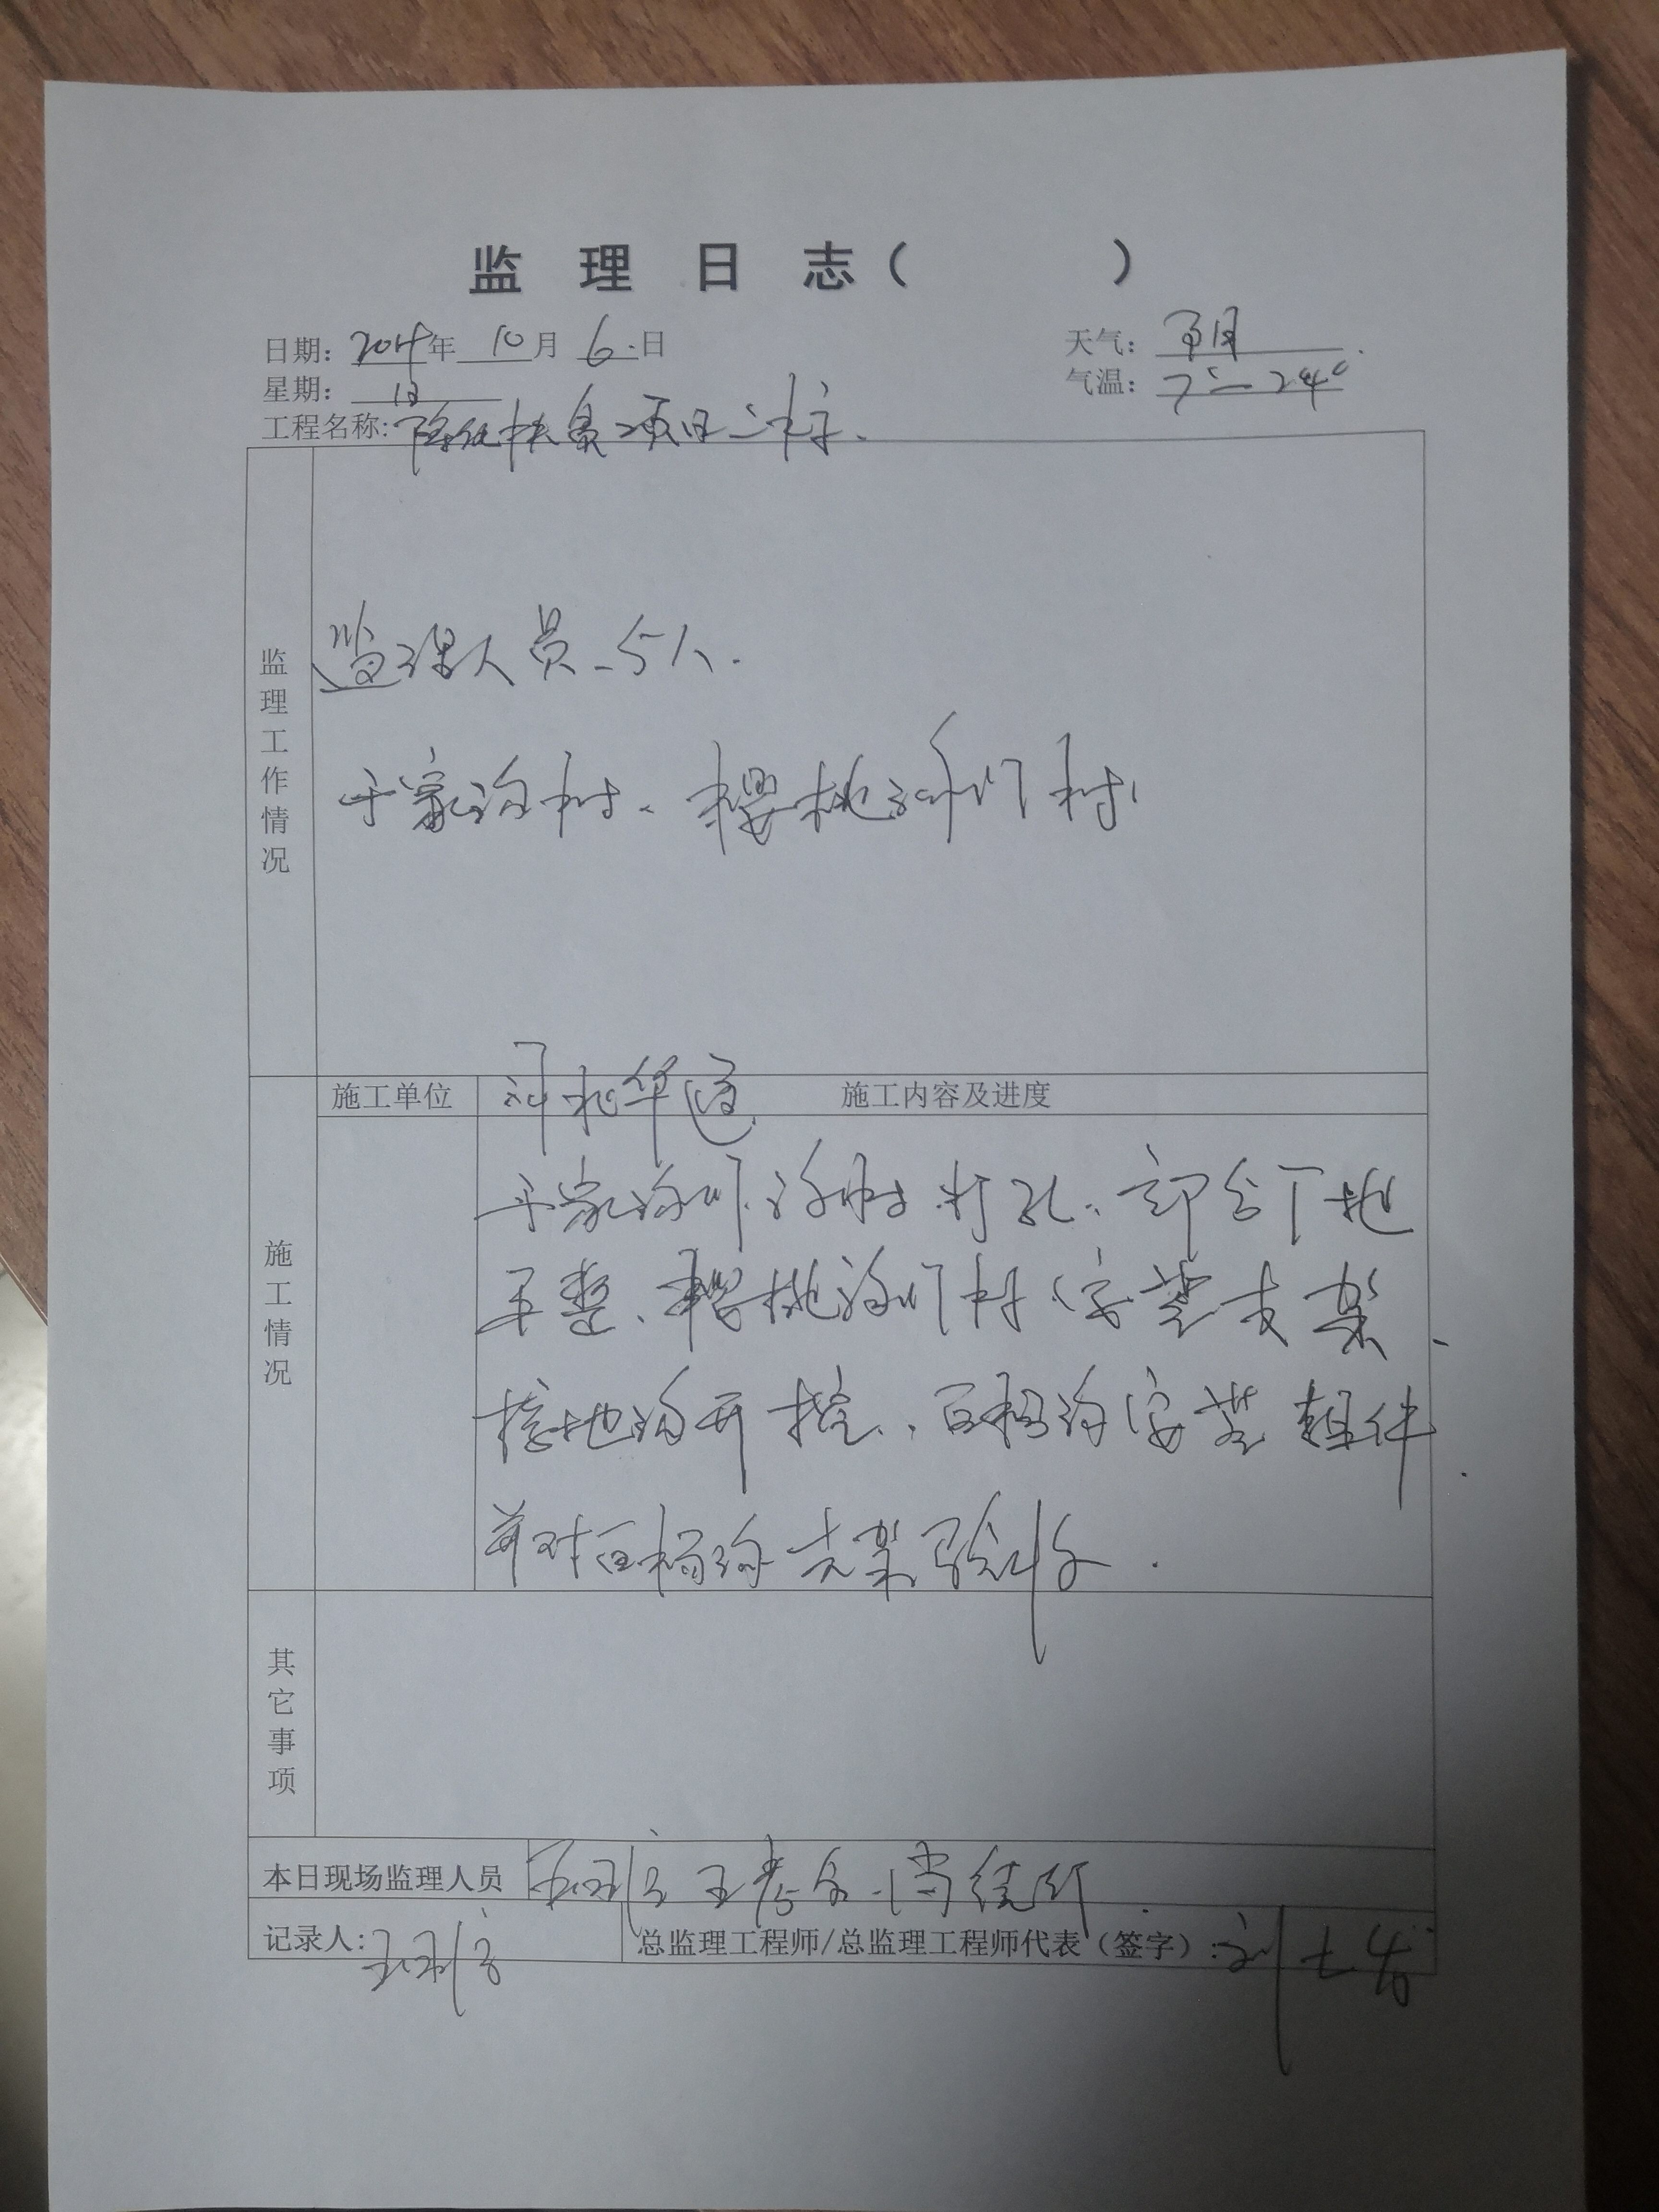 监 理 日 志（ ）
日期：2014年 10月 6日 天气：晴
星期：日 气温：7°—24°
工程名称：扶贫项目二标
监理工作情况
监理人员 5人.
于家沟村、樱桃沟门村
施工情况
施工单位 河北华 施工内容及进度
于家沟 沟村打孔、部分 地
平整、樱桃沟门村安装支架、
接地沟开挖、百杨沟安装组件.
并对百杨沟支架验收.
其它事项
本日现场监理人员 王 王
记录人：王 总监理工程师/总监理工程师代表（签字）：刘